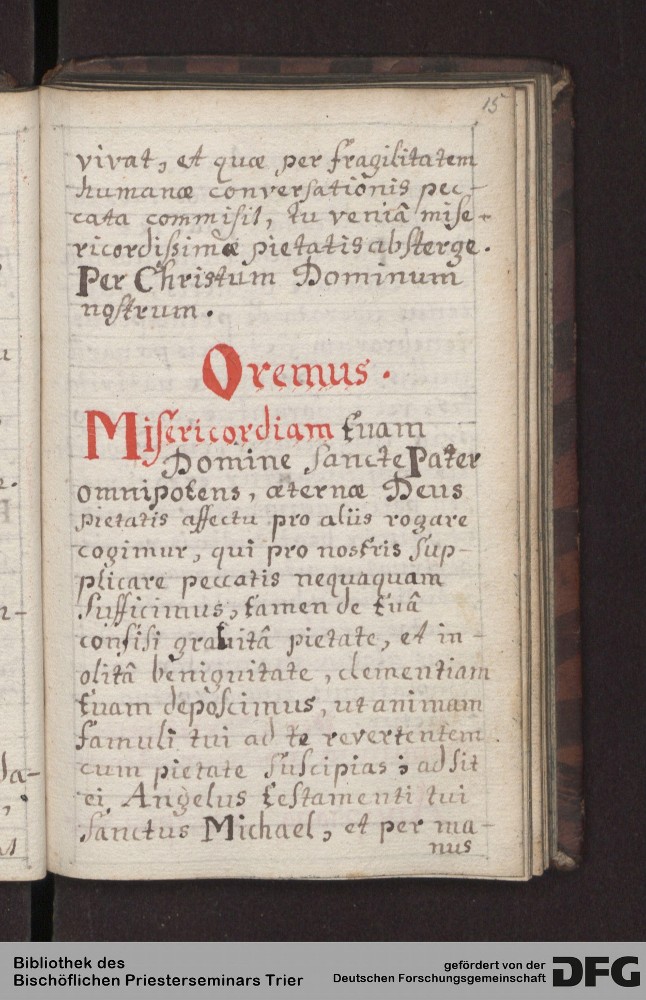 15
vivat, et quæ per fragilitatem
humanæ conversationis pec-
cata commisit, tu veniâ mise-
ricordissimæ pietatis absterge.
Per Christum Dominum
nostrum.
Oremus.
Misericordiam tuam
Domine sancte Pater
omnipotens, æternæ Deus
pietatis affectu pro aliis rogare
cogimur, qui pro nostris sup-
plicare peccatis nequaquam
sufficimus, tamen de tuâ
confisi gratuitâ pietate, et in-
olitâ benignitate, clementiam
tuam deposcimus, ut animam
famuli tui ad te revertentem
cum pietate suscipias; adsit
ei Angelus testamenti tui
sanctus Michael, et per ma-
nus
Bibliothek des
Bischöflichen Priesterseminars Trier
gefördert von der
Deutschen Forschungsgemeinschaft
DFG